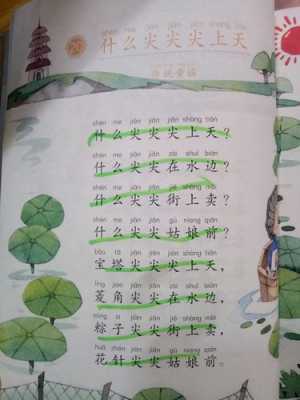 什么尖尖尖上天
传统童谣
shén me jiān jiān jiān shàng tiān
什么尖尖尖上天？
shén me jiān jiān zài shuǐ biān
什么尖尖在水边？
shén me jiān jiān jiē shàng mài
什么尖尖街上卖？
shén me jiān jiān gū niang qián
什么尖尖姑娘前？
bǎo tǎ jiān jiān jiān shàng tiān
宝塔尖尖尖上天，
líng jiao jiān jiān zài shuǐ biān
菱角尖尖在水边，
zòng zi jiān jiān jiē shàng mài
粽子尖尖街上卖，
huā zhēn jiān jiān gū niang qián
花针尖尖姑娘前。